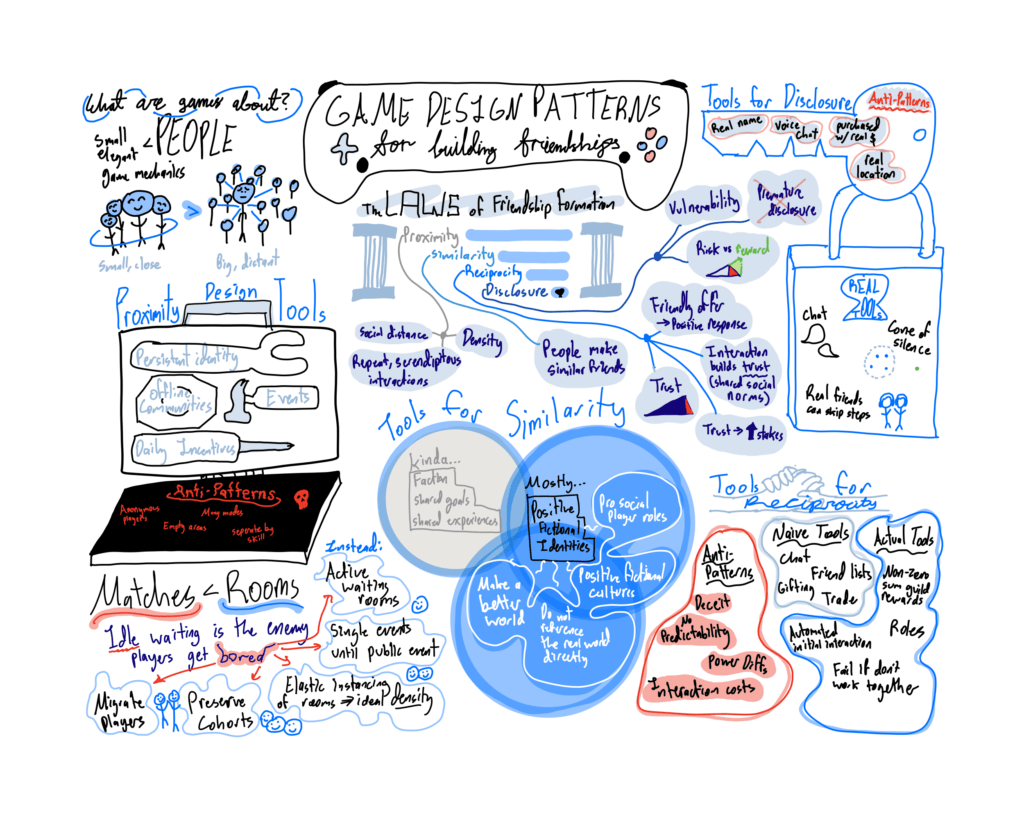 What are games about?
Small
elegant < PEOPLE
game mechanics
Small, close
Big, distant
GAME DESIGN PATTERNS
for building friendships
The LAWS of Friendship Formation
Proximity
Similarity
Reciprocity
Disclosure
Social distance
Density
Repeat, serendiptous
interactions
People make
similar friends
Vulnerability
Premature
disclosure
Risk vs reward
Friendly offer
→ Positive response
Interaction
builds trust
(shared social
norms)
Trust
Trust → ↑ stakes
Tools for Disclosure
Anti-Patterns
Real name
Voice
chat
purchased
w/ real $
real
location
REAL
TOOLS
Chat
Cone of
silence
Real friends
can skip steps
Proximity Design Tools
Persistent identity
Offline
Communities
Events
Daily Incentives
Anti-Patterns
Anonymous
players
Many modes
Empty areas
seperate by
skill
Matches < Rooms
Idle waiting is the enemy
players get bored
Migrate
Players
Preserve
Cohorts
Instead:
Active
waiting
rooms
Single events
until public event
Elastic Instancing
of rooms ⇒ ideal density
Tools for Similarity
Kinda...
Faction
shared goals
shared experiences
Mostly...
Positive
Fictional
Identities
Pro social
player roles
Positive fictional
cultures
Make a
better
world
Do not
reference
the real word
directly
Tools for
Reciprocity
Anti-
Patterns
Deceit
No
Predictability
Power Diffs
Interaction costs
Naive Tools
Chat
Friend lists
Gifting
Trade
Actual Tools
Non-zero
sum guild
rewards
Roles
Automated
initial interaction
Fail if don't
work together